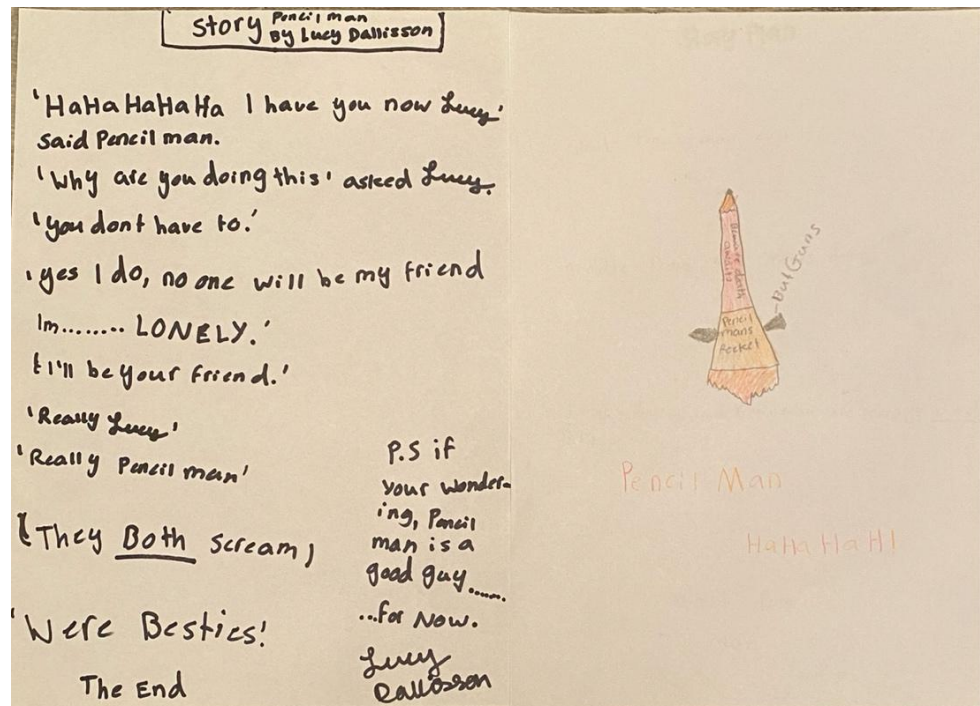 Story Pencil man
By Lucy Dallisson
'HaHaHaHaHa I have you now Lucy'
said Pencil man.
'Why are you doing this' asked Lucy.
'you dont have to.'
'yes I do, no one will be my friend
Im........ LONELY.'
'I'll be your friend.'
'Really Lucy'
'Really Pencil man'
(They Both scream,
'Were Besties!
The End
P.S if
your wonder-
ing, Pencil
man is a
good guy......
...for Now.
Lucy
Dallisson
death
Pencil
mans
Rocket
-But Guns
Pencil Man
HaHaHaH!